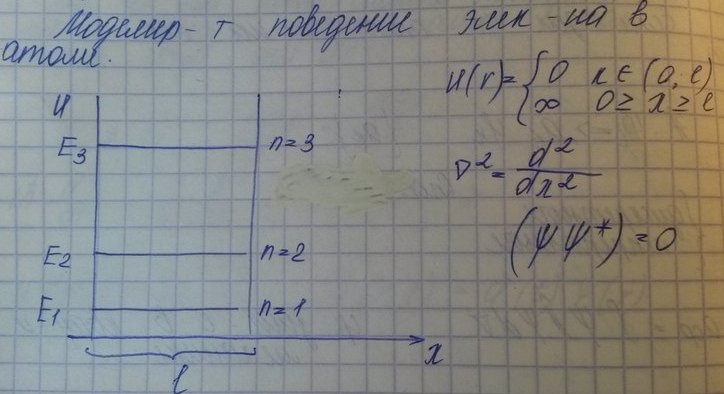 Моделир-т поведение элек-на в
атоме.
U(r)= { 0 x ∈ (0, l)
∞ 0 ≥ x ≥ l
U
E3 n=3
∇² = d²/dx²
(ψψ*)=0
E2 n=2
E1 n=1
x
l